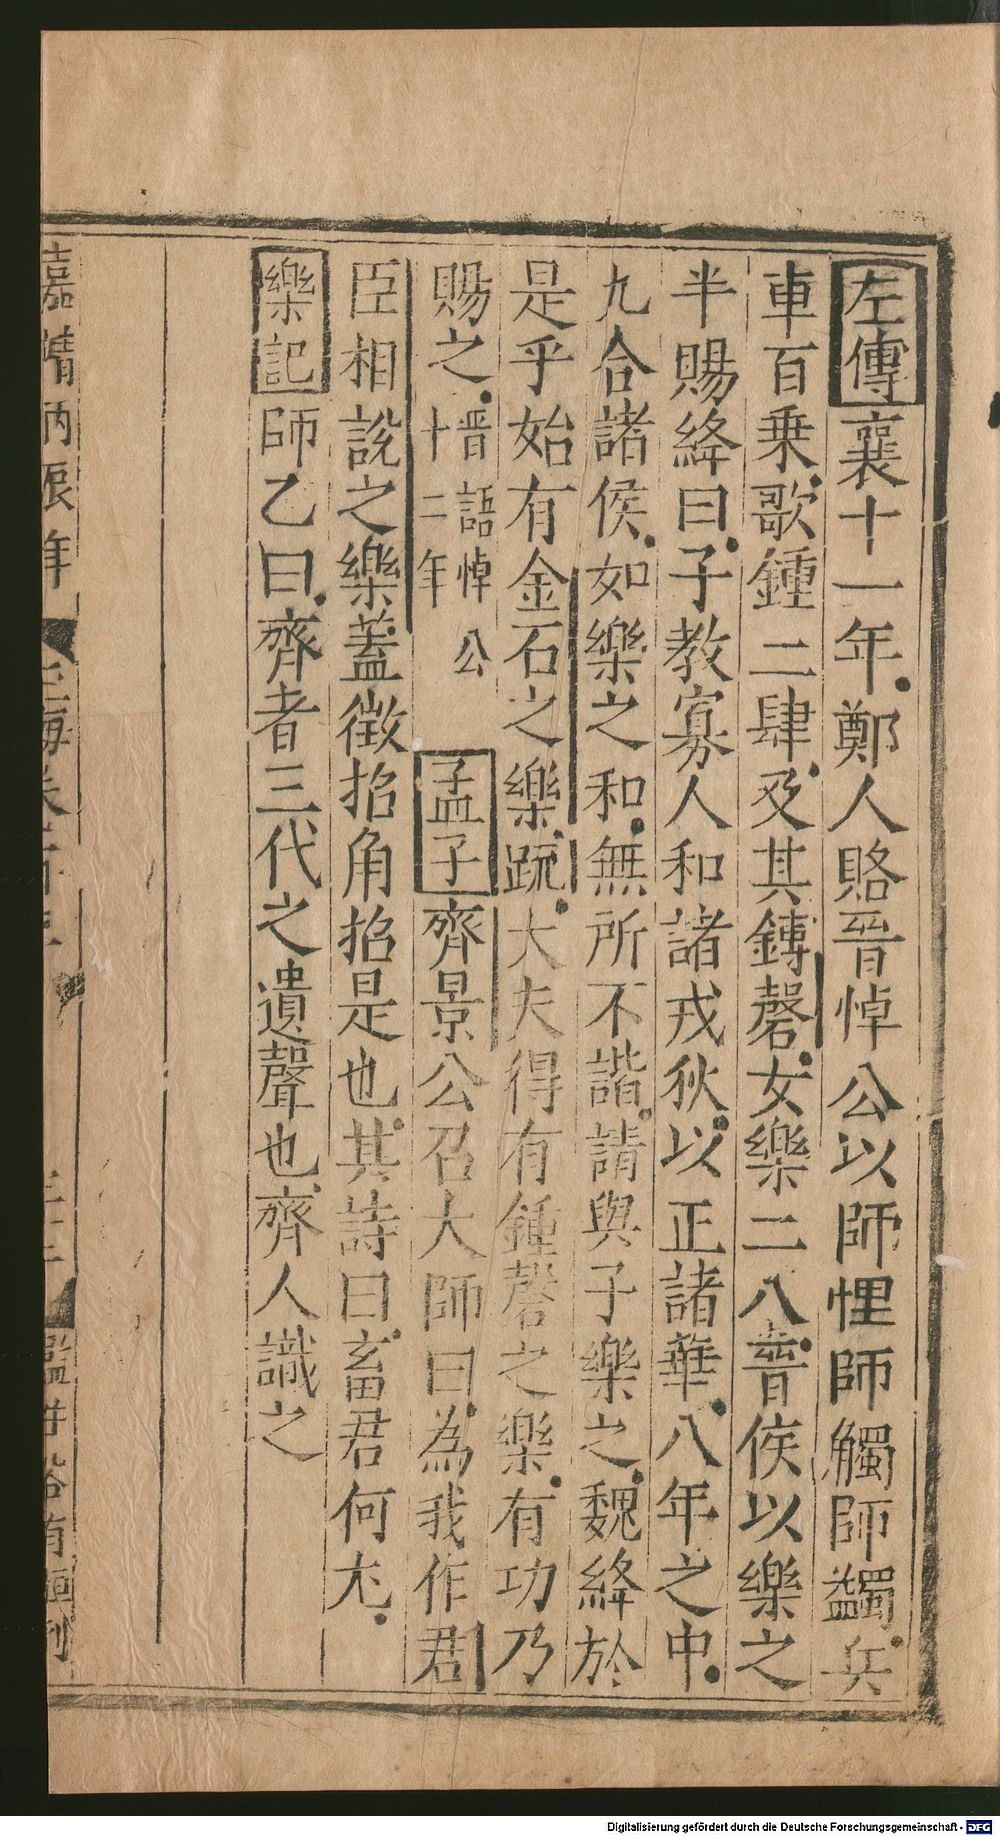 左傳襄十一年鄭人賂晉悼公以師悝師觸師蠲兵
車百乗歌鍾二肆及其鏄磬女樂二八晉侯以樂之
半賜絳曰子教寡人和諸戎狄以正諸華八年之中
九合諸侯如樂之和無所不諧請與子樂之魏絳於
是乎始有金石之樂䟽大夫得有鍾磬之樂有功乃
賜之晋語悼公
十二年
孟子齊景公召大師曰為我作君
臣相說之樂蓋徴招角招是也其詩曰畜君何尤
樂記師乙曰齊者三代之遺聲也齊人識之
嘉靖丙辰年
Digitalisierung gefördert durch die Deutsche Forschungsgemeinschaft - DFG